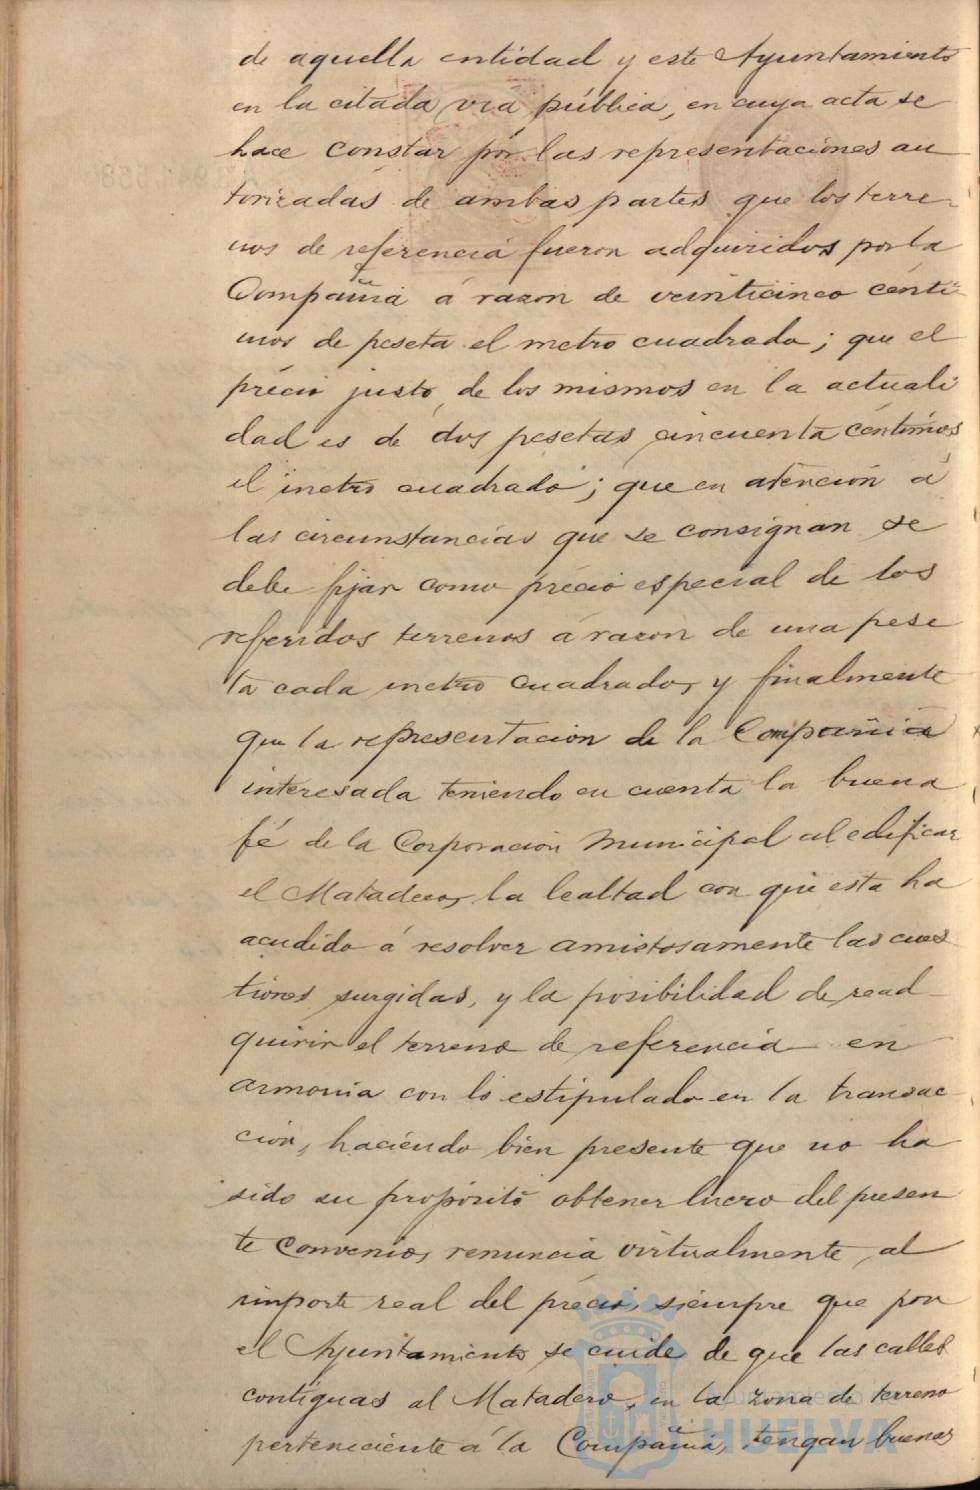 de aquella entidad y este Ayuntamiento
en la citada via pública, en cuya acta se
hace constar por las representaciones au
torizadas de ambas partes que los terre-
nos de referencia fueron adquiridos por la
Compañia á razon de veinticinco cénti-
mos de peseta el metro cuadrado; que el
précio justo, de los mismos en la actuali
dad es de dos pesetas cincuenta céntimos
el metro cuadrado; que en atención á
las circunstancias que se consignan se
debe fijar como précio especial de los
referidos terrenos á razon de una pese
ta cada metro cuadrado, y finalmente
que la representacion de la Compañia
interesada teniendo en cuenta la buena
fé de la Corporacion Municipal al edificar
el Matadero, la lealtad con que esta ha
acudido á resolver amistosamente las cues
tiones surgidas, y la posibilidad de read-
quirir el terreno de referencia en
armonia con lo estipulado en la transac-
cion, haciendo bien presente que no ha
sido su propósito obtener lucro del presen
te convenio, renuncia virtualmente, al
importe real del précio, siempre que por
el Ayuntamiento se cuide de que las calles
contiguas al Matadero, en la zona de terreno
perteneciente á la Compañia, tengan buenas
Ayuntamiento de
HUELVA